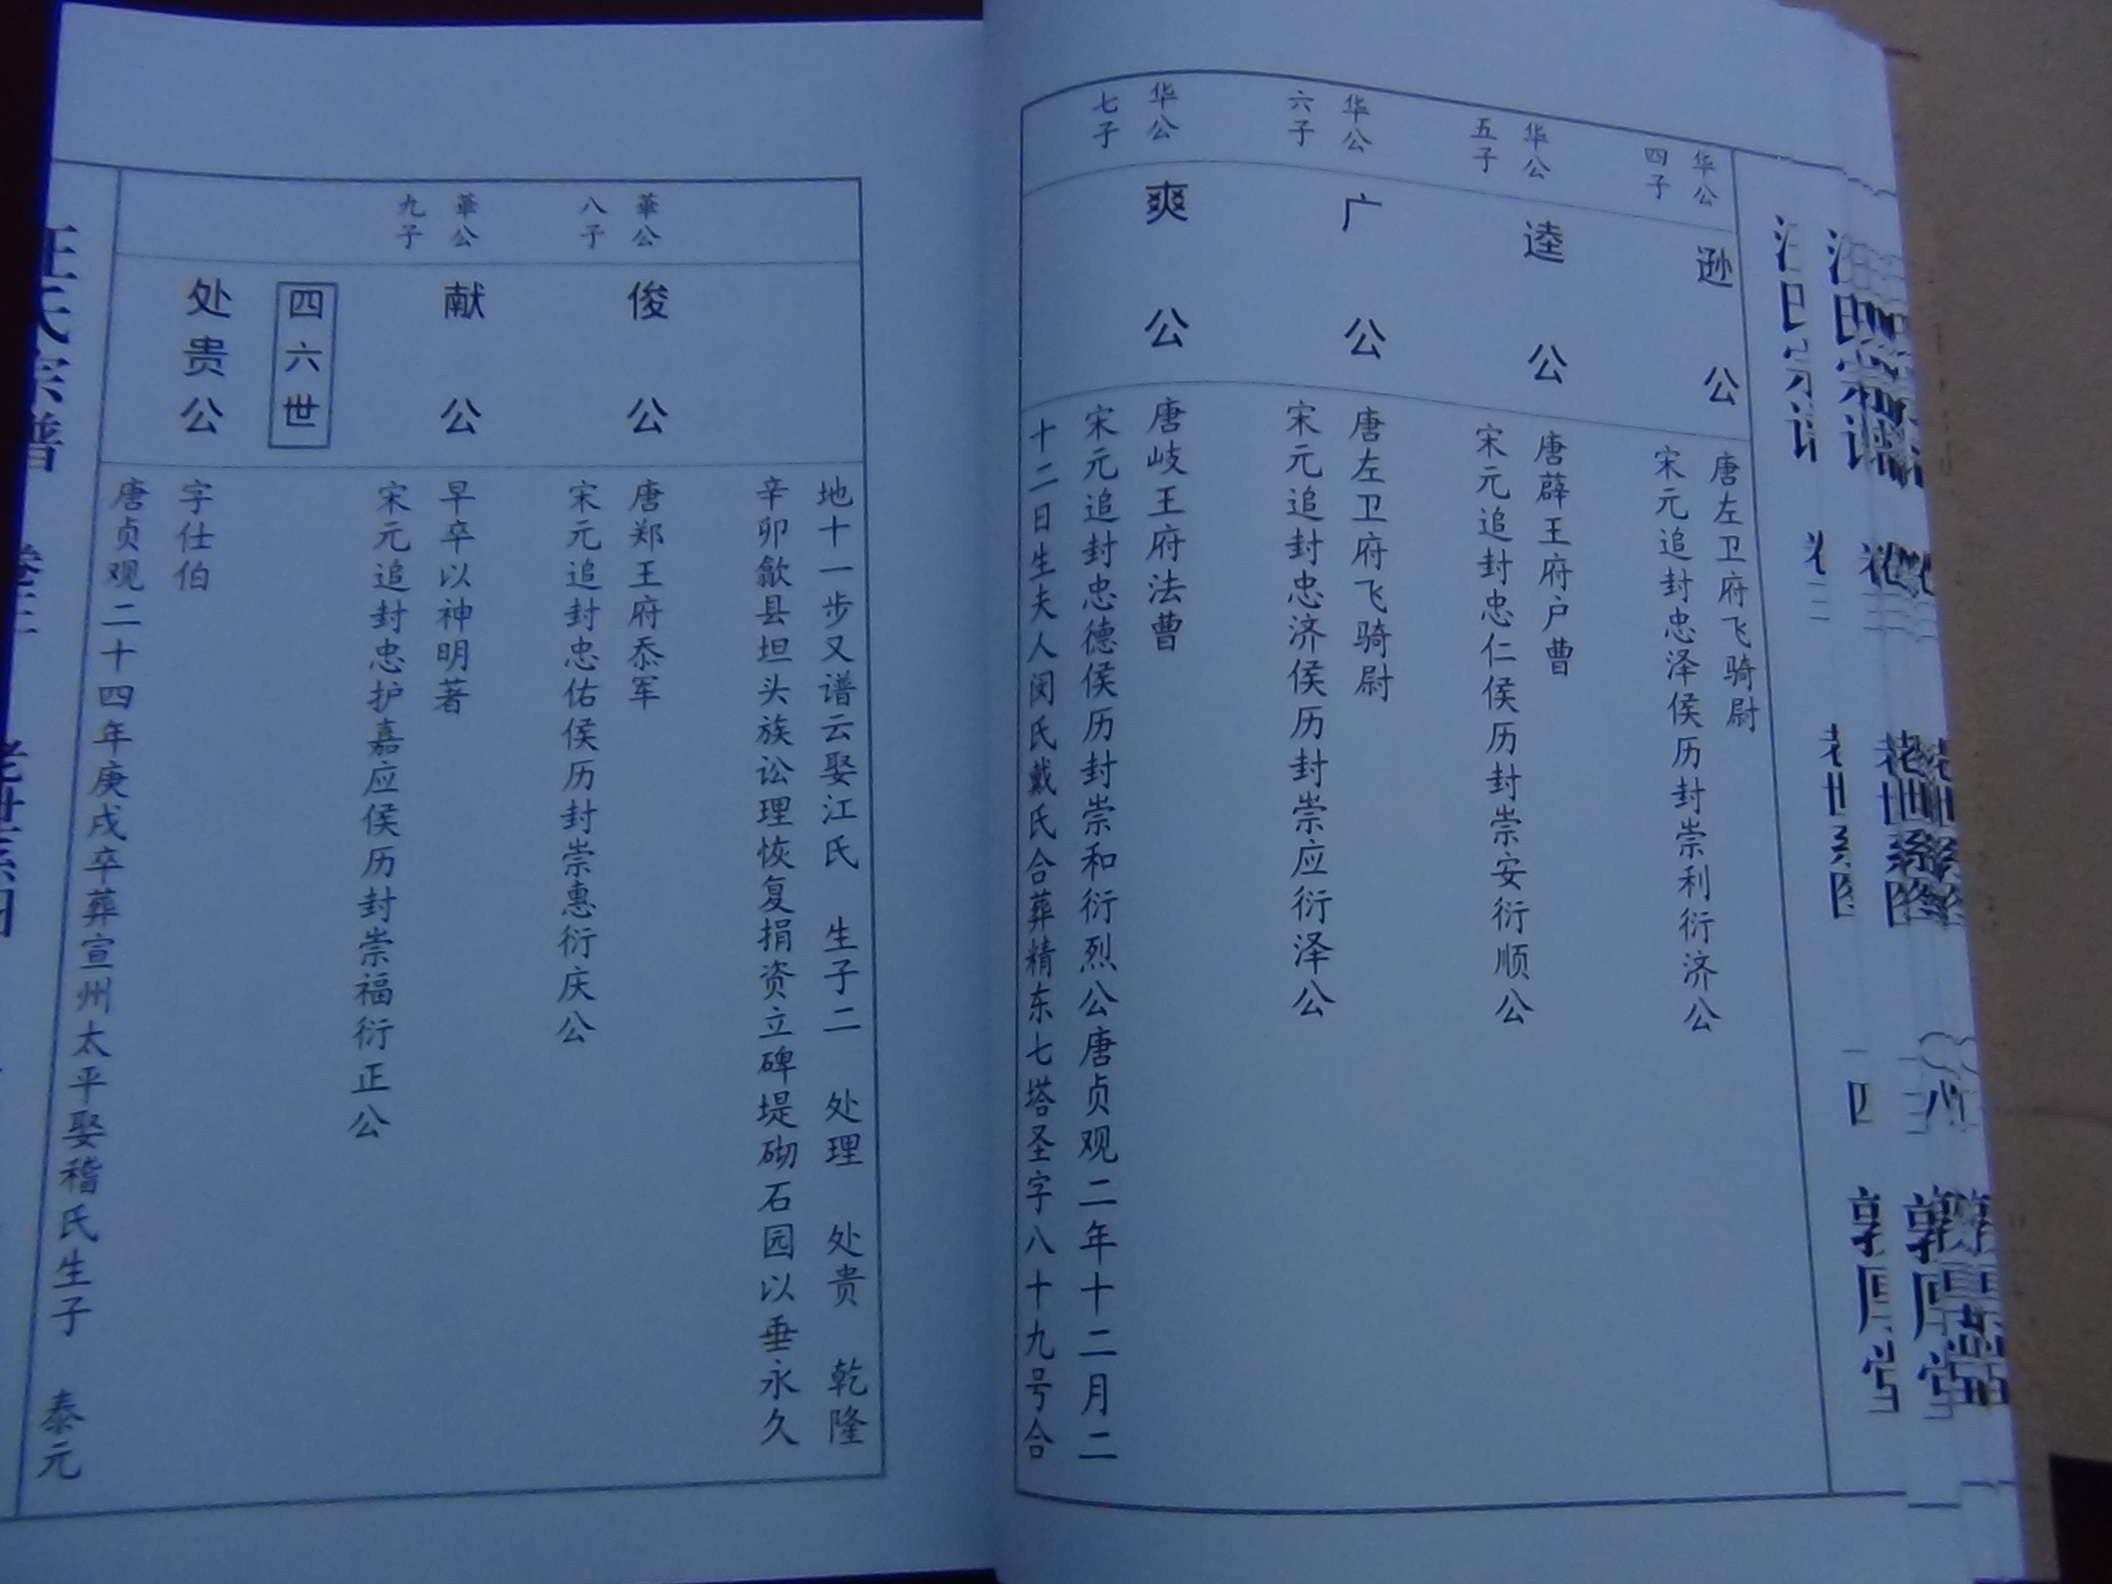 华公
四子
逊公
唐左卫府飞骑尉
宋元追封忠泽侯历封崇利衍济公
华公
五子
逵公
唐薛王府户曹
宋元追封忠仁侯历封崇安衍顺公
华公
六子
广公
唐左卫府飞骑尉
宋元追封忠济侯历封崇应衍泽公
华公
七子
爽公
唐岐王府法曹
宋元追封忠德侯历封崇和衍烈公唐贞观二年十二月二
十二日生夫人闵氏戴氏合葬精东七塔圣字八十九号合
地十一步又谱云娶江氏 生子二 处理 处贵 乾隆
辛卯歙县坦头族讼理恢复捐资立碑堤砌石园以垂永久
華公
八子
俊公
唐郑王府忝军
宋元追封忠佑侯历封崇惠衍庆公
華公
九子
献公
早卒以神明著
宋元追封忠护嘉应侯历封崇福衍正公
四六世
处贵公
字仕伯
唐贞观二十四年庚戌卒葬宣州太平娶稽氏生子 泰元
汪氏宗谱